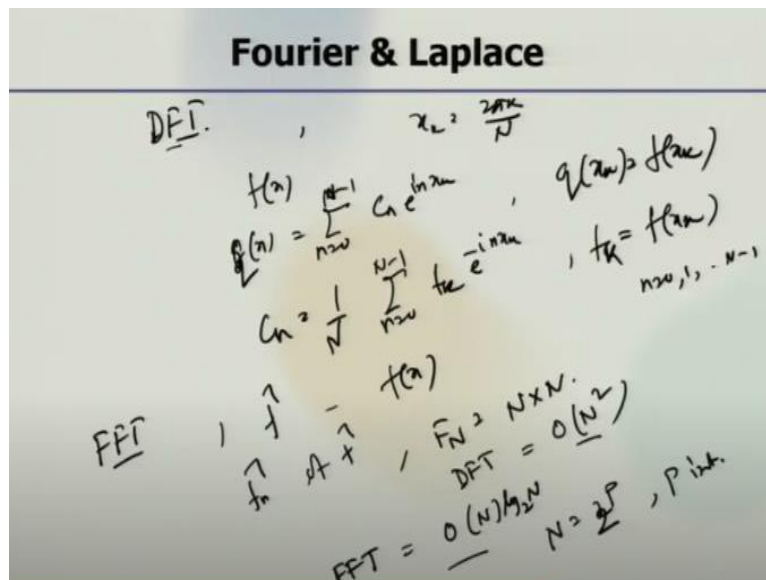 Fourier & Laplace
DFT. , x_k = 2πk/N
f(x)
q(x) = \sum_{n=0}^{N-1} C_n e^{inx_k} , q(x_k) = f(x_k)
C_n = 1/N \sum_{n=0}^{N-1} f_k e^{-inx_k} , f_k = f(x_k)
n=0, 1, .. N-1
FFT , \hat{f} - f(x)
\hat{f}_n of \hat{f} , F_N = N×N.
DFT = O(N^2)
FFT = O(N) log_2 N N = 2^p , p int.